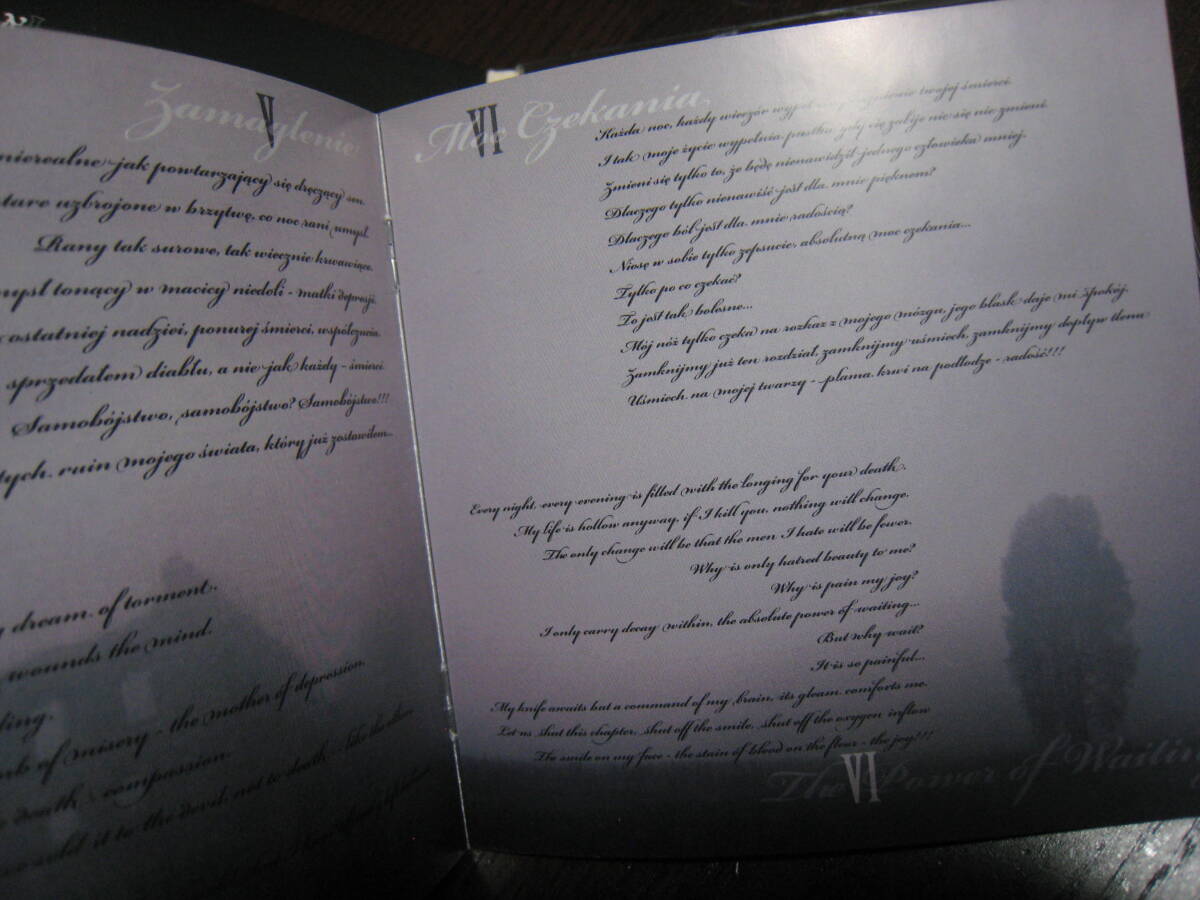 V
Zamglenie
nierealne jak powtarzający się dręczący sen.
uzbrojone w brzytwę, co noc rani umysł.
Rany tak surowe, tak wiecznie krwawiące.
tonący w macicy niedoli - matki depresji.
ostatniej nadziei, ponurej śmierci, współczucia.
sprzedałem diabłu, a nie jak każdy - śmierci.
Samobójstwo, samobójstwo? Samobójstwo!!!
ruin mojego świata, który już zostawiłem...
dream of torment.
wounds the mind.
of misery - the mother of depression.
death, compassion.
sold it to the devil, not to death - like the others
VI
Moc Czekania
Każda noc, każdy wieczór twojej śmierci.
I tak moje życie wypełnia pustka, gdy cię zabiję nic się nie zmieni.
Zmieni się tylko to, że będę nienawidził jednego człowieka mniej.
Dlaczego tylko nienawiść jest dla mnie pięknem?
Dlaczego ból jest dla mnie radością?
Niosę w sobie tylko zepsucie, absolutną moc czekania...
Tylko po co czekać?
To jest tak bolesne...
Mój nóż tylko czeka na rozkaz z mojego mózgu, jego blask daje mi spokój.
Zamknijmy już ten rozdział, zamknijmy uśmiech, zamknijmy dopływ tlenu
Uśmiech na mojej twarzy - plama krwi na podłodze - radość!!!
Every night, every evening is filled with the longing for your death.
My life is hollow anyway, if I kill you, nothing will change.
The only change will be that the men I hate will be fewer.
Why is only hatred beauty to me?
Why is pain my joy?
I only carry decay within, the absolute power of waiting...
But why wait?
It is so painful...
My knife awaits but a command of my brain, its gleam comforts me.
Let us shut this chapter, shut off the smile, shut off the oxygen inflow
The smile on my face - the stain of blood on the floor - the joy!!!
The VI Power of Waitin